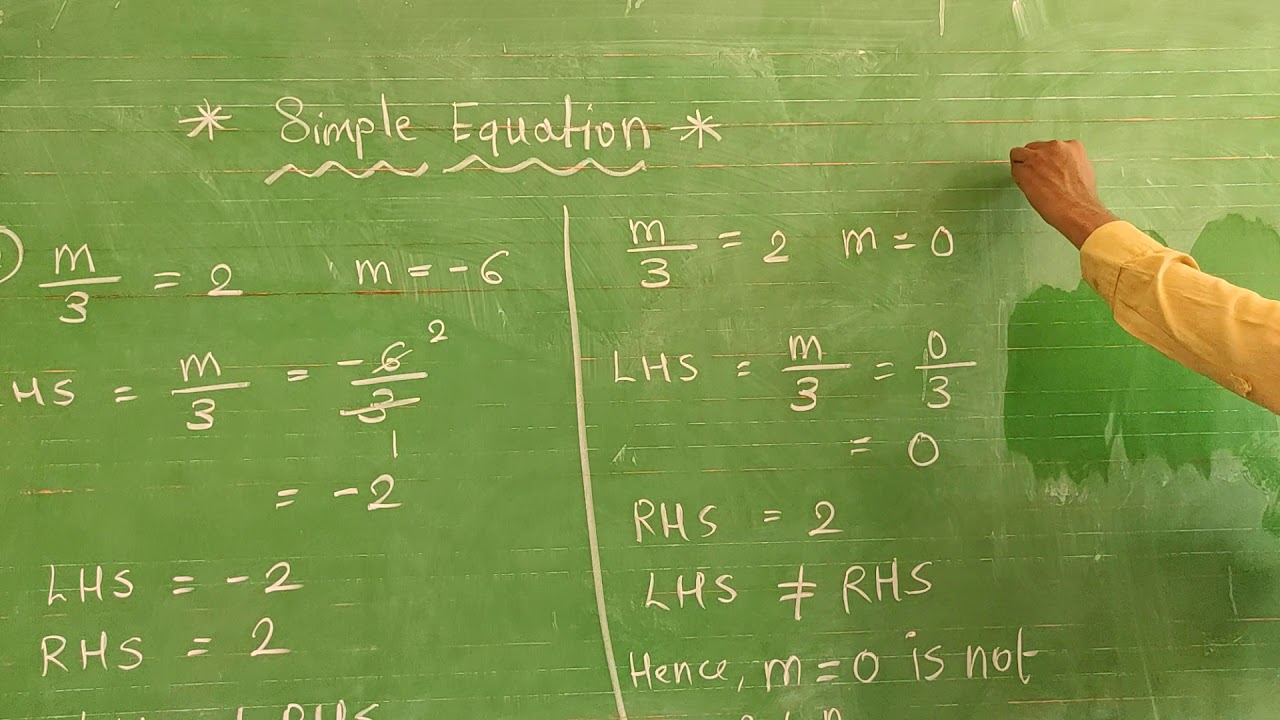 * Simple Equation *
m/3 = 2 m = -6
HS = m/3 = -6/3 2 1
= -2
LHS = -2
RHS = 2
RHS
m/3 = 2 m = 0
LHS = m/3 = 0/3
= 0
RHS = 2
LHS ≠ RHS
Hence, m = 0 is not